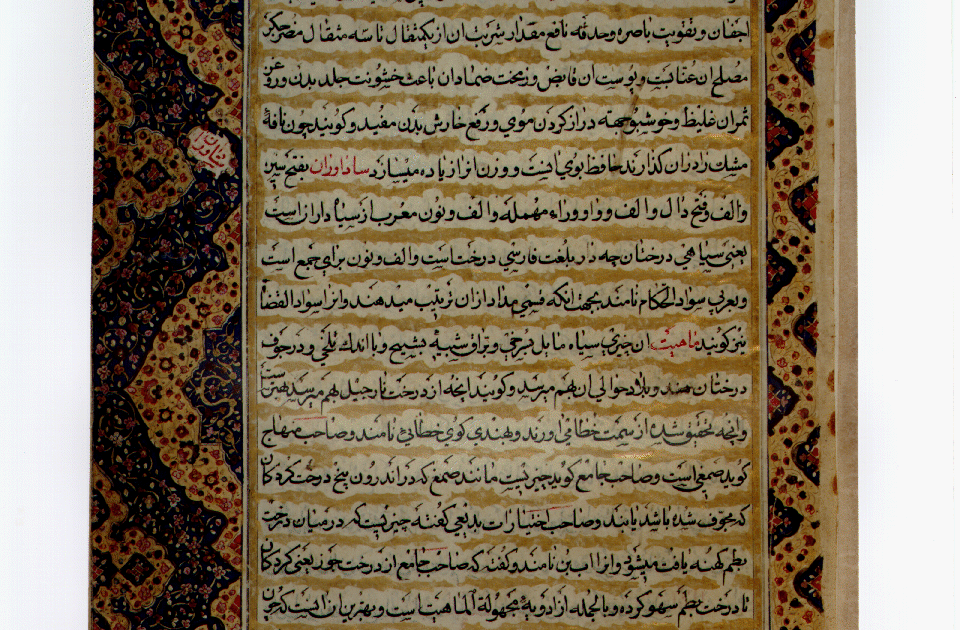 اجفان و تقویت باصره و حدقه نافع مقدار شربت ان از یکمثقال تا سه مثقال مضر جگر
مصلح ان عنابست و پوست ان قابض و زمخت ضماد ان باعث خشونت جلد بدن و روغن
ثمر ان غلیظ و خوشبو جهة دراز کردن موی و رفع خارش بدن مفید و کویند چون نافهٔ
مشک را در ان کذارند حافظ بوی انست و وزن انرا زیاده میسازد ساداوران بفتح سین
و الف و فتح دال و الف و واو و راء مهمله و الف و نون معرب از سیاه داران است
یعنی سیاهی درختان چه دار بلغت فارسی درخت است و الف و نون برای جمع است
و بعربی سواد الحکام نامند بجهت انکه قسمی مداد از ان ترتیب میدهند و انرا سواد القضاة
نیز کویند ماهیت ان چیزی سیاه مایل بسرخی و براق شبیه بشبح و با اندک تلخی و در جوف
درختان هند و بلاد حوالی ان بهم میرسد و کویند انچه از درخت نارجیل بهم میرسد بهتر است
و انچه تحقیق شده از سمت خطا می اورند و بهندی کوی خطائی نامند و صاحب منهاج
کوید صمغی است و صاحب جامع کوید چیزیست مانند صمغ که در اندرون بیخ درخت کردکان
که مجوف شده باشد یابند و صاحب اختیارات بدیعی کفته چیزیست که در میان درخت
بطم کهنه یافت میشود و انرا ابین نامند و کفته که صاحب جامع از درخت جوز یعنی کردکان
تا درخت بطم سهو کرده و بالجمله از ادویهٔ مجهولة الماهیات است و بهترین ان انست که چون
ساداوران